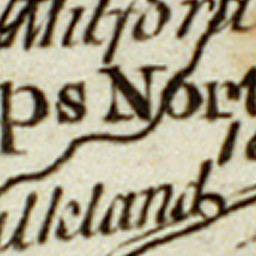 Milford
ps Nort
alkland